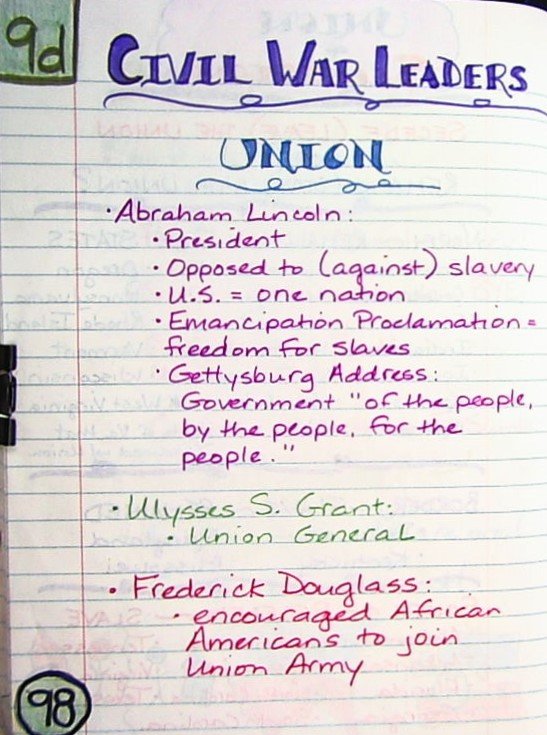 9d
CIVIL WAR LEADERS
UNION
• Abraham Lincoln:
• President
• Opposed to (against) slavery
• U.S. = one nation
• Emancipation Proclamation =
freedom for slaves
• Gettysburg Address:
Government "of the people,
by the people, for the
people."
• Ulysses S. Grant:
• Union General
• Frederick Douglass:
• encouraged African
Americans to join
Union Army
98